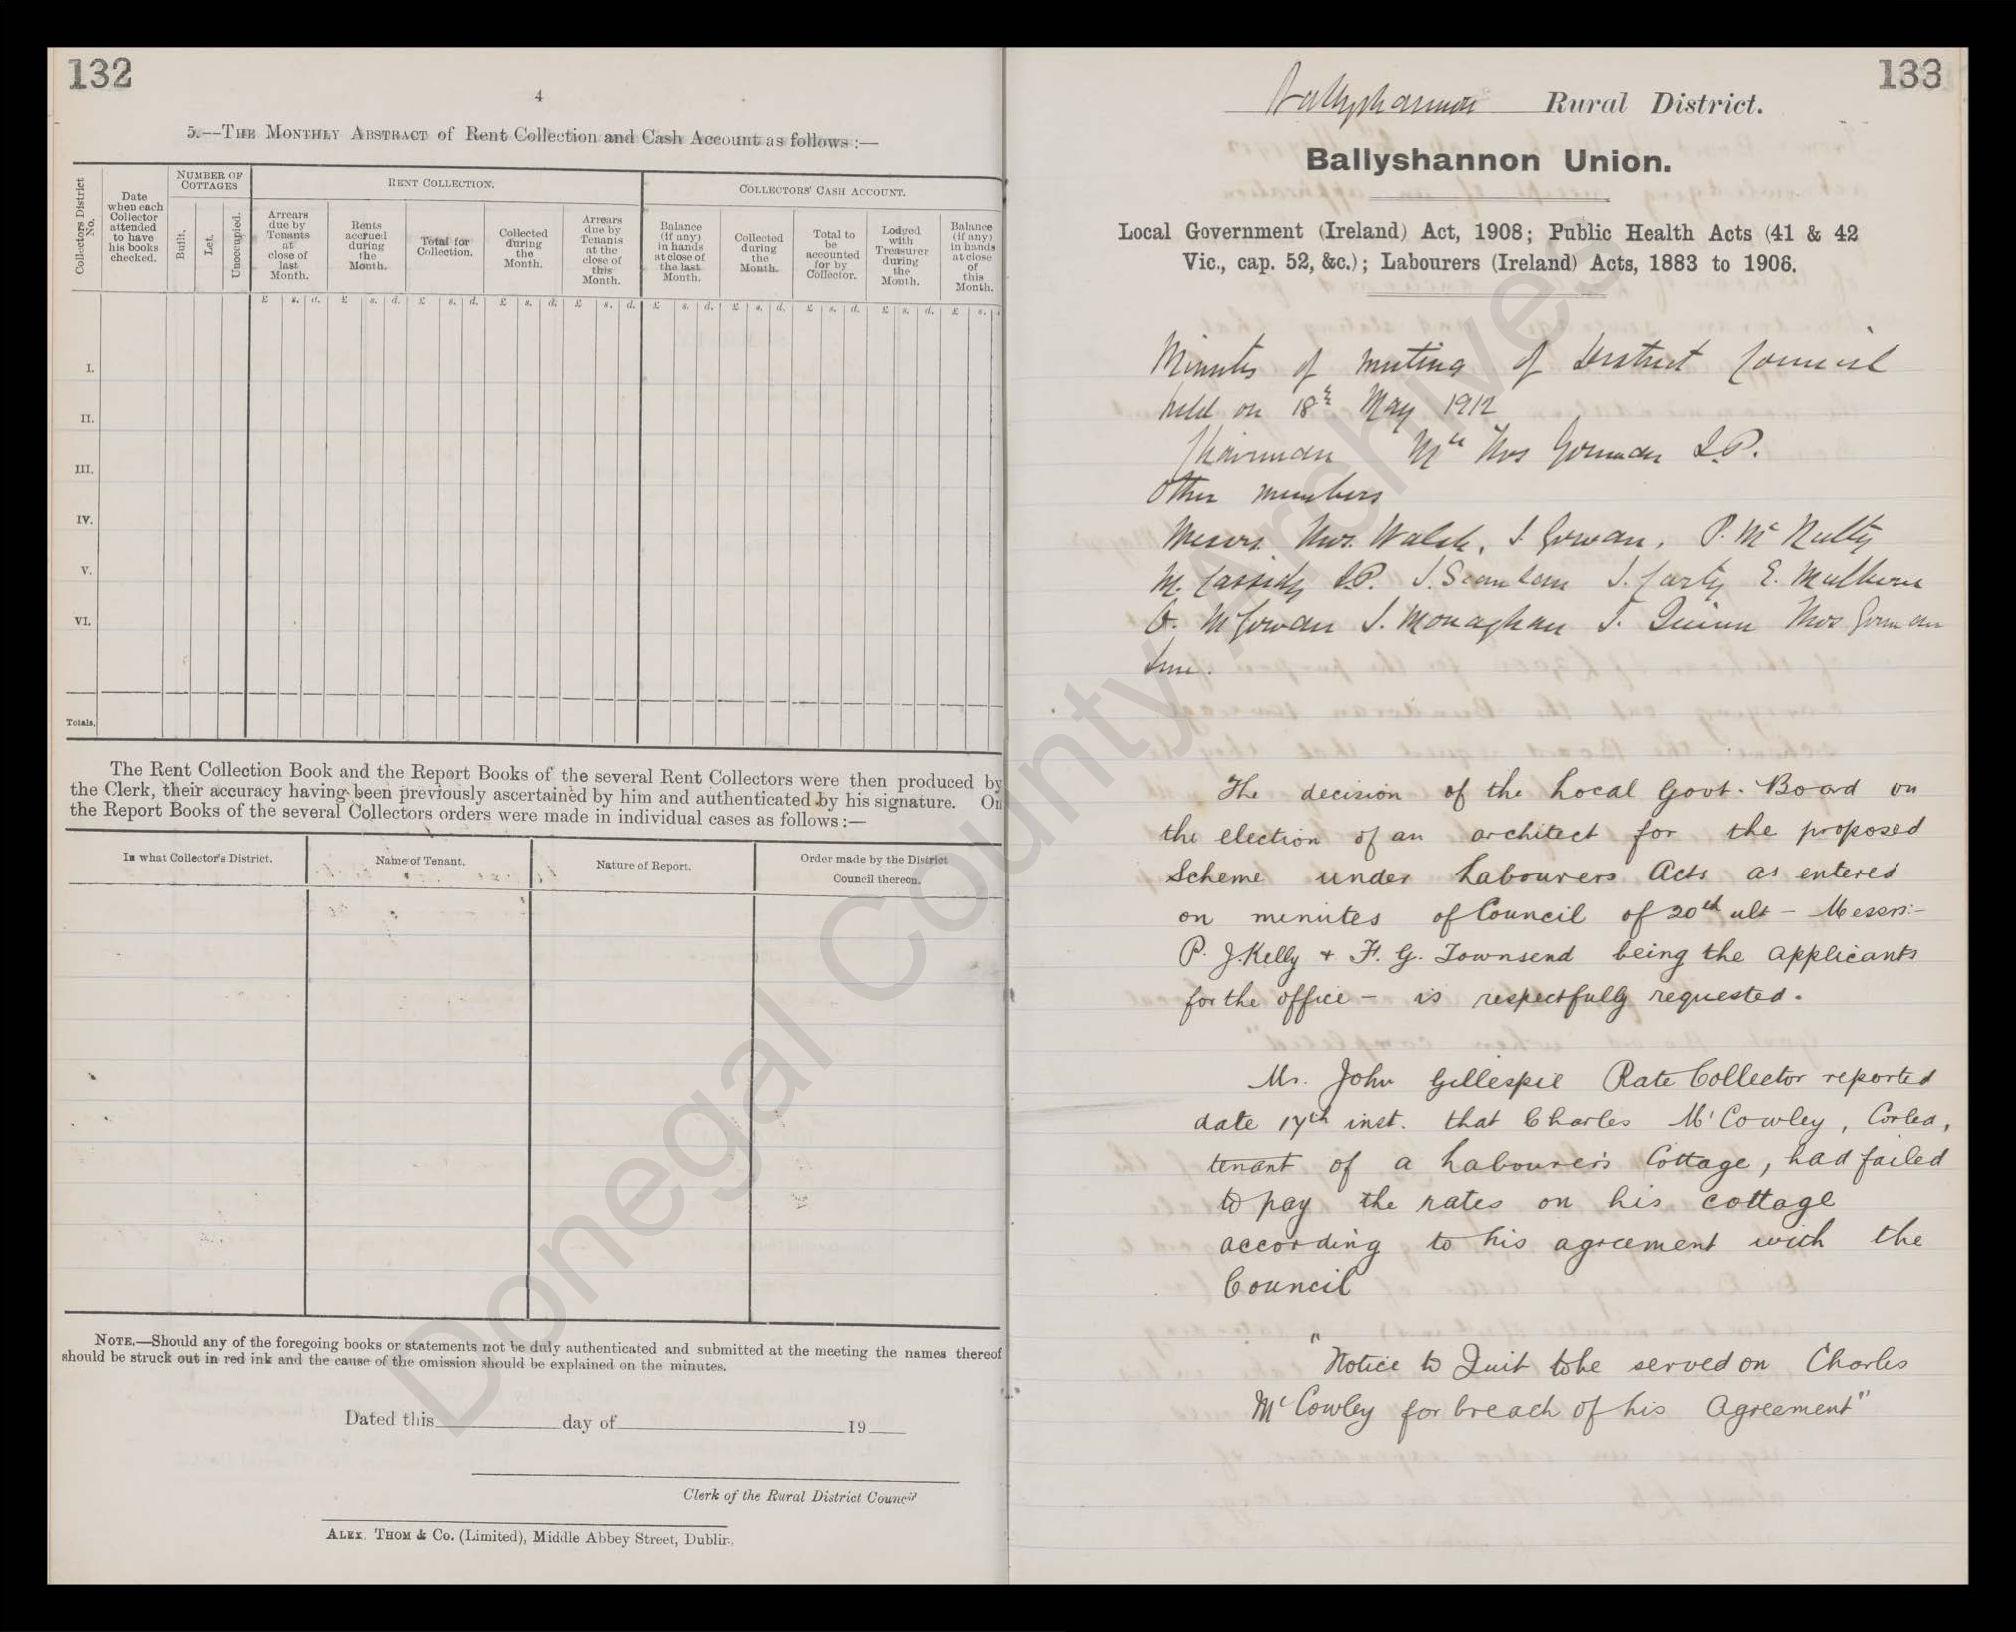 132
4
5.—THE MONTHLY ABSTRACT of Rent Collection and Cash Account as follows :—
Collectors District No.
Date when each Collector attended to have his books checked.
NUMBER OF COTTAGES
Built.
Let.
Unoccupied.
RENT COLLECTION.
Arrears due by Tenants at close of last Month.
Rents accrued during the Month.
Total for Collection.
Collected during the Month.
Arrears due by Tenants at the close of this Month.
COLLECTORS' CASH ACCOUNT.
Balance (if any) in hands at close of the last Month.
Collected during the Month.
Total to be accounted for by Collector.
Lodged with Treasurer during the Month.
Balance (if any) in hands at close of this Month.
£ s. d. £ s. d. £ s. d. £ s. d. £ s. d. £ s. d. £ s. d. £ s. d. £ s. d. £ s.
I.
II.
III.
IV.
V.
VI.
Totals,
The Rent Collection Book and the Report Books of the several Rent Collectors were then produced by
the Clerk, their accuracy having been previously ascertained by him and authenticated by his signature. On
the Report Books of the several Collectors orders were made in individual cases as follows :—
In what Collector's District.
Name of Tenant.
Nature of Report.
Order made by the District
Council thereon.
NOTE.—Should any of the foregoing books or statements not be duly authenticated and submitted at the meeting the names thereof
should be struck out in red ink and the cause of the omission should be explained on the minutes.
Dated this day of 19
Clerk of the Rural District Council
ALEX. THOM & Co. (Limited), Middle Abbey Street, Dublin.
133
Ballyshannon Rural District.
Ballyshannon Union.
Local Government (Ireland) Act, 1908; Public Health Acts (41 & 42
Vic., cap. 52, &c.); Labourers (Ireland) Acts, 1883 to 1906.
Minutes of meeting of District Council
held on 18th May 1912
Chairman Mr Thos Gorman J.P.
Other members
Messrs Thos. Walsh, J. Gowan, P. McNulty
M. Cassidy J.P. J. Scanlan J. Carty E. Mulhern
O. McGowan J. Monaghan T. Quinn Thos Gorman
Junr.
The decision of the Local Govt. Board on
the election of an architect for the proposed
Scheme under Labourers Acts as entered
on minutes of Council of 20th ult – Messrs:–
P. J. Kelly + F. G. Townsend being the applicants
for the office – is respectfully requested.
Mr. John Gillespie Rate Collector reported
date 17th inst. that Charles McCowley, Corlea,
tenant of a Labourer's Cottage, had failed
to pay the rates on his cottage
according to his agreement with the
Council
"Notice to Quit to be served on Charles
McCowley for breach of his Agreement"
Donegal County Archives